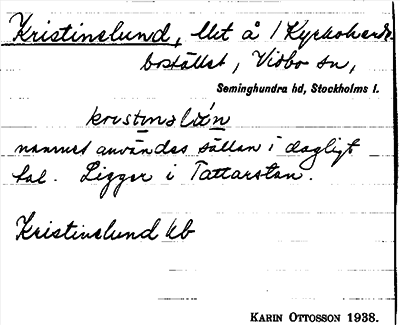 Kristinelund, llet å 1 Kyrkoherde
bostället, Vidbo sn,
Seminghundra hd, Stockholms l.
kristinelún
namnet användes sällan i dagligt
tal. Ligger i Tattarstan.
Kristinelund kb
KARIN OTTOSSON 1938.